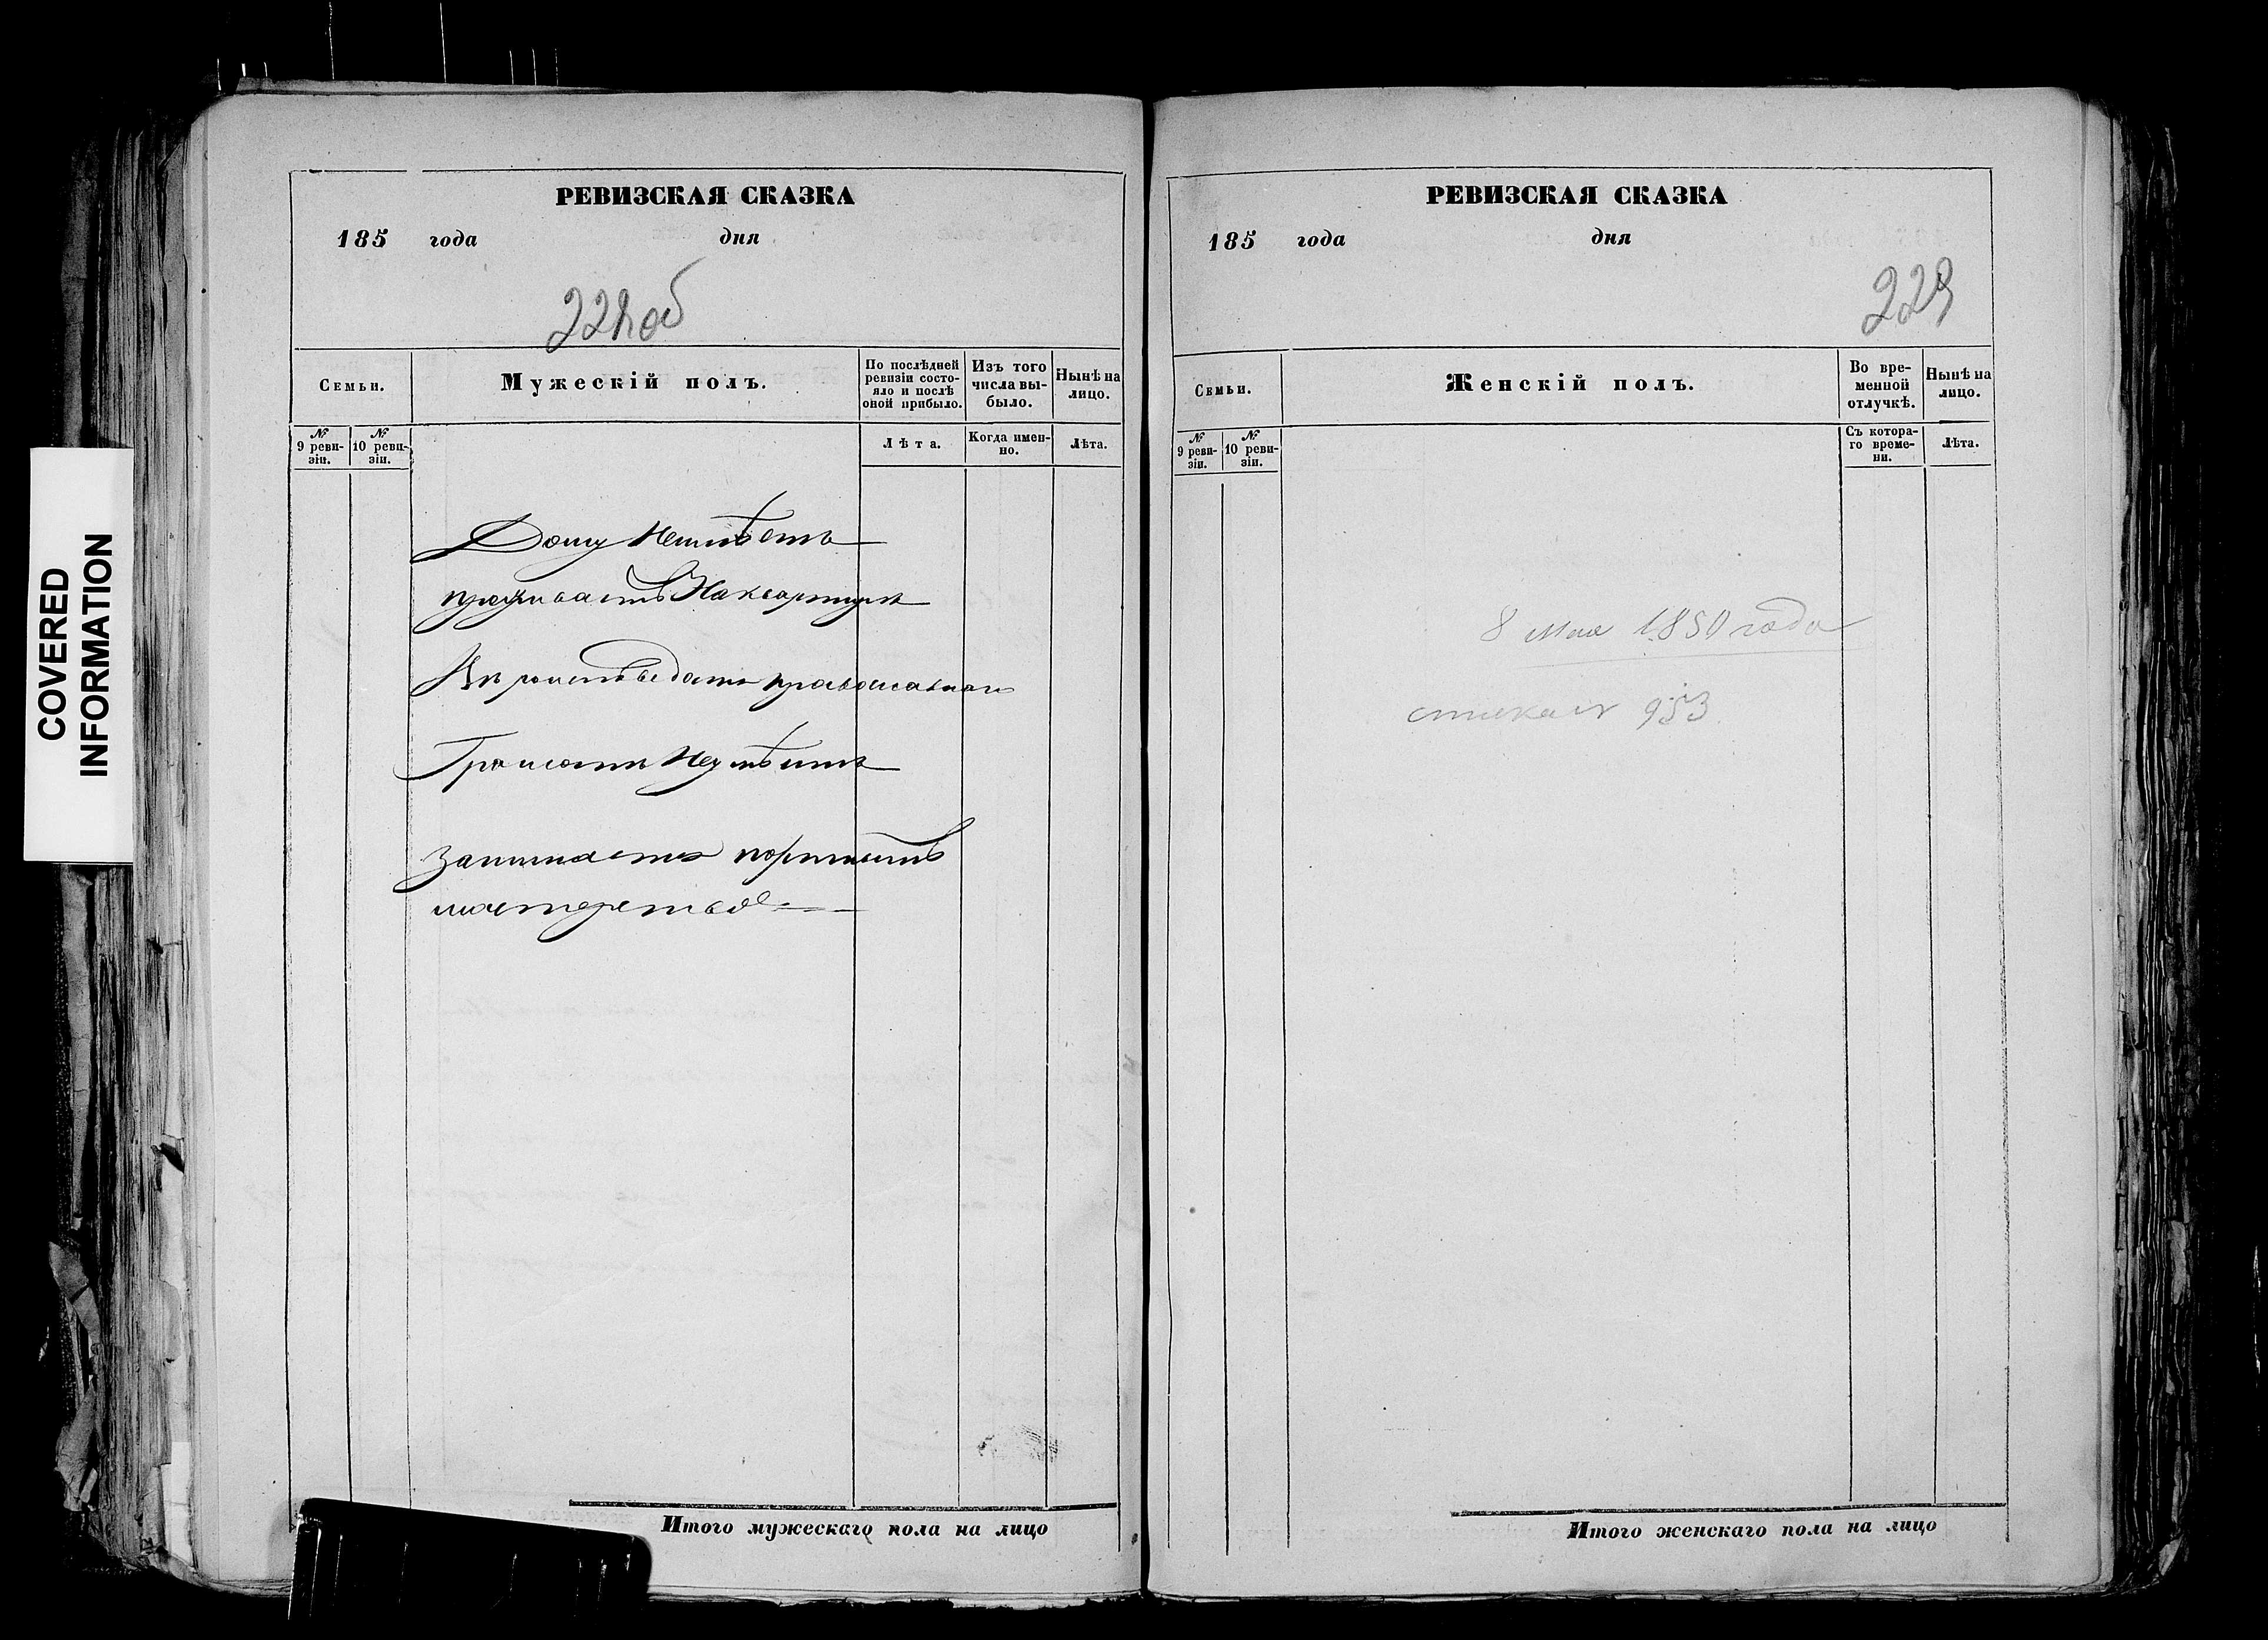 COVERED
INFORMATION
РЕВИЗСКАЯ СКАЗКА
185 года дня
228 об
Семьи.
Мужескій полъ.
По послѣдней
ревизіи состо-
яло и послѣ
оной прибыло.
Изъ того
числа вы-
было.
Нынѣ на
лицо.
№
9 реви-
зіи.
№
10 реви-
зіи.
Лѣта.
Когда имен-
но.
Лѣта.
Дому неимѣетъ
проживаетъ На квартире
Вѣроисповеданія православнаго
Грамотѣ Неумѣетъ
Занимается портнымъ
мастерствомъ
Итого мужескаго пола на лицо
РЕВИЗСКАЯ СКАЗКА
185 года дня
229
Семьи.
Женскій полъ.
Во вре-
менной
отлучкѣ.
Нынѣ на
лицо.
№
9 реви-
зіи.
№
10 реви-
зіи.
Съ котора-
го време-
ни.
Лѣта.
8 мая 1850 года
953
Итого женскаго пола на лицо